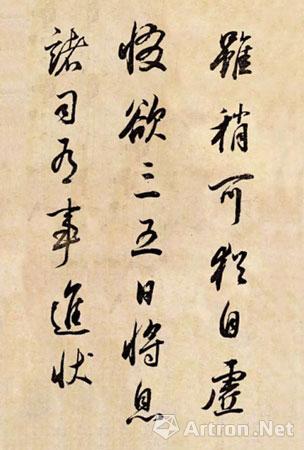 雖稍可猶自虛
惙欲三五日將息
諸司有事進狀
Artron.Net